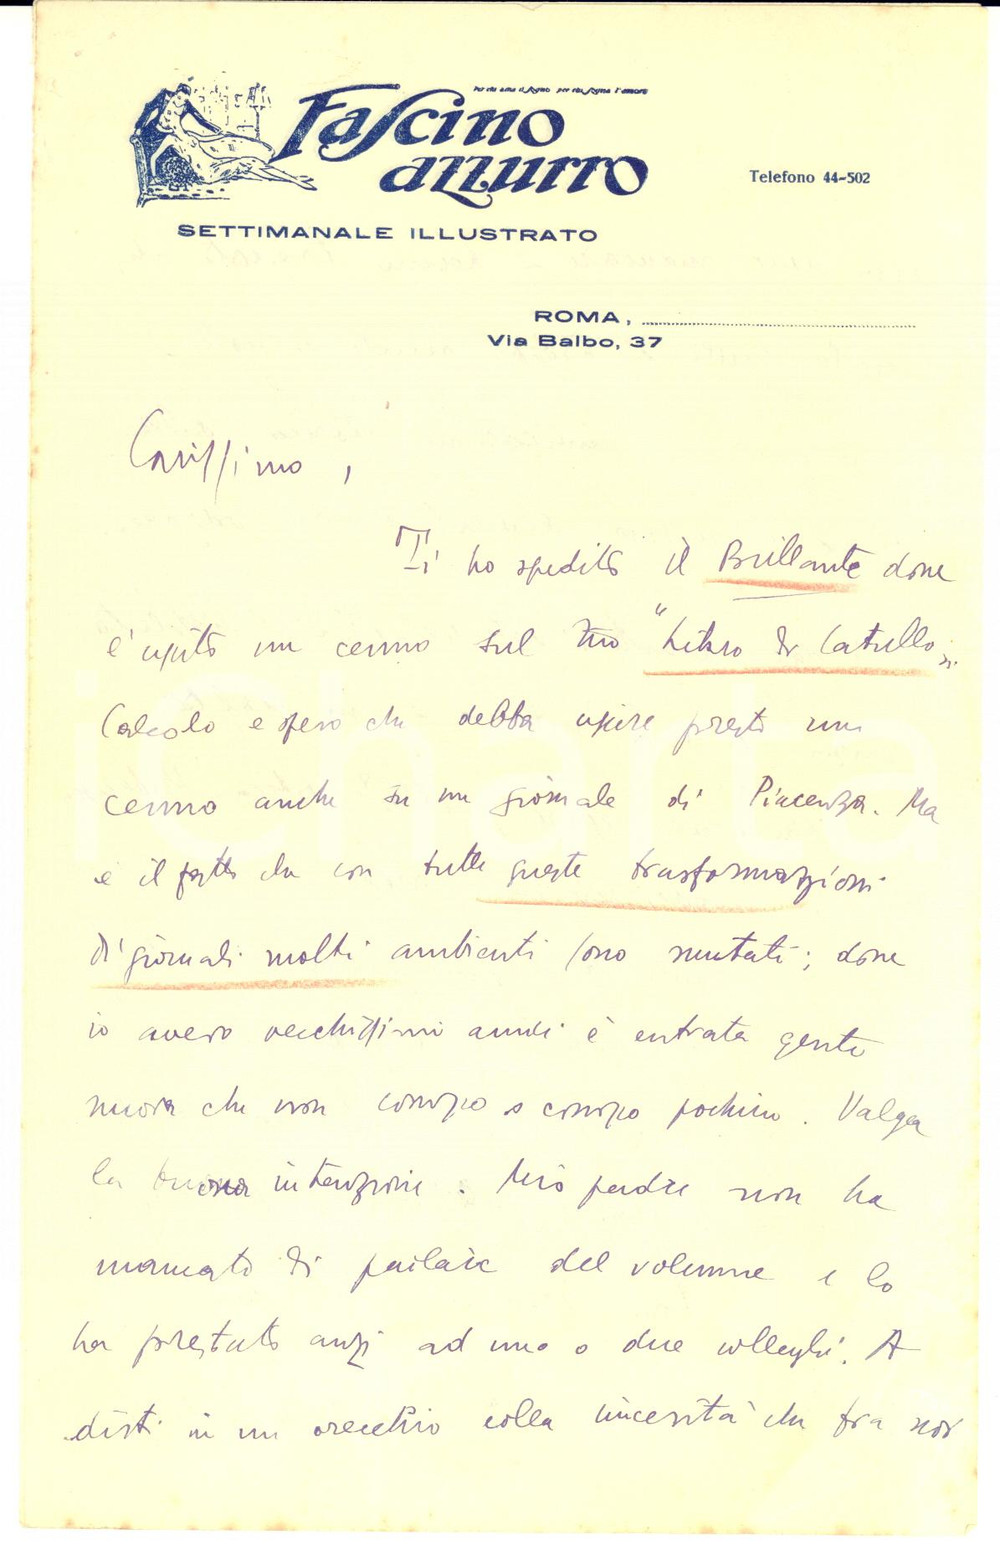 per chi ama il sogno per chi sogna l'amore
Fascino
azzurro
Telefono 44-502
SETTIMANALE ILLUSTRATO
ROMA,
Via Balbo, 37
Carissimo,
Ti ho spedito il Brillante dove
è uscito un cenno sul tuo "Libro di Catullo".
Calcolo e spero che debba uscire presto un
cenno anche su un giornale di Piacenza. Ma
è il fatto che con tutte queste trasformazioni
di giornali molti ambienti sono mutati; dove
io avevo vecchissimi amici è entrata gente
nuova che non conosco o conosco pochino. Valga
la buona intenzione. Mio padre non ha
mancato di parlare del volume e lo
ha prestato anzi ad uno o due colleghi. A
dirti in un orecchio colla sincerità che fra noi